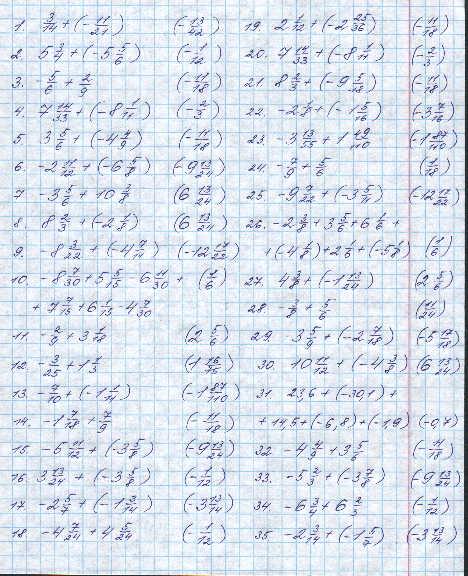 1. 3/14 + (-11/21) (-13/42)
2. 5 3/4 + (-5 5/6) (-1/12)
3. -5/6 + 2/9 (-11/18)
4. 7 14/33 + (-8 1/11) (-2/3)
5. 3 5/6 + (-4 4/9) (-11/18)
6. -2 11/12 + (-6 5/8) (-9 13/24)
7. -3 5/6 + 10 3/8 (6 13/24)
8. 8 2/3 + (-2 1/8) (6 13/24)
9. -8 3/22 + (-4 7/11) (-12 17/22)
10. -8 7/30 + 5 5/15 - 6 11/30 + (1/6)
+ 7 7/15 + 6 1/15 - 4 7/30
11. -2/9 + 3 1/18 (2 5/6)
12. -3/25 + 1 1/3 (1 16/75)
13. -7/10 + (-1 1/11) (-1 87/110)
14. -1 7/18 + 7/9 (-11/18)
15. -6 11/12 + (-3 5/8) (-9 13/24)
16. 3 13/24 + (-3 5/8) (-1/12)
17. -2 5/7 + (-1 3/14) (-3 13/14)
18. -4 7/24 + 4 5/24 (-1/12)
19. 2 1/12 + (-2 25/36) (-11/18)
20. 7 14/33 + (-8 1/11) (-2/3)
21. 8 2/3 + (-9 5/18) (-11/18)
22. -2 1/8 + (-1 5/16) (-3 7/16)
23. -3 13/55 + 1 49/110 (-1 87/110)
24. -7/9 + 5/6 (1/18)
25. -9 7/22 + (-3 5/11) (-12 17/22)
26. -2 3/8 + 3 5/6 + 6 1/6 +
+ (-4 1/8) + 2 1/6 + (-5 1/8) (1/6)
27. 4 3/8 + (-1 13/24) (2 5/6)
28. -3/8 + 5/6 (11/24)
29. 3 5/9 + (-2 7/18) (-5 17/18)
30. 10 11/12 + (-4 3/8) (6 13/24)
31. 23,6 + (-30,1) +
+ 14,5 + (-6,8) + (-1,9) (-0,7)
32. -4 4/9 + 3 5/6 (-11/18)
33. -5 2/3 + (-3 7/8) (-9 13/24)
34. -6 3/4 + 6 2/3 (-1/12)
35. -2 3/14 + (-1 5/7) (-3 13/14)